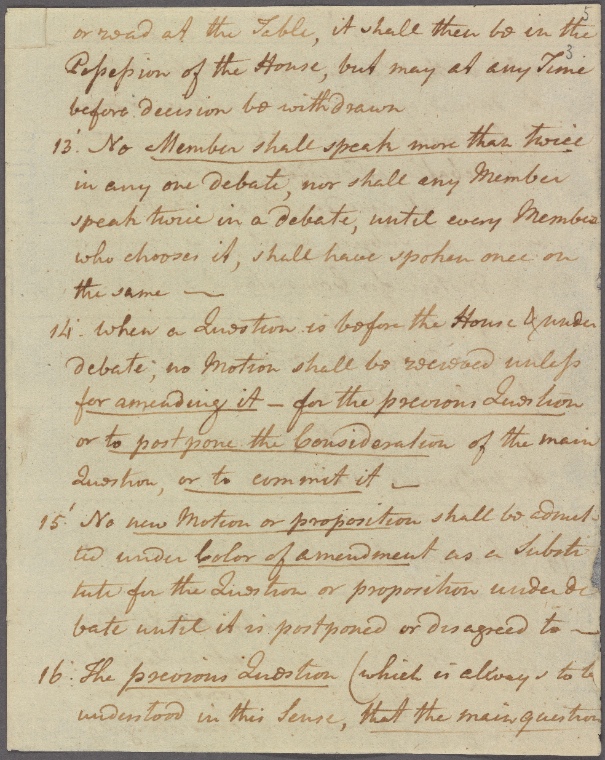 5
or read at the Table, it shall then be in the
3
Possession of the House, but may at any Time
before decision be withdrawn
13. No Member shall speak more than twice
in any one debate, nor shall any Member
speak twice in a debate, until every Member
who chooses it, shall have spoken once on
the same —
14. when a Question is before the House & under
debate, no Motion shall be received unless
for amending it – for the previous Question
or to postpone the Consideration of the main
Question, or to commit it —
15. No new Motion or proposition shall be admit-
ted under Color of amendment as a Substi
tute for the Question or proposition under de
bate until it is postponed or disagreed to —
16. The previous Question (which is always to be
understood in this Sense, that the main question